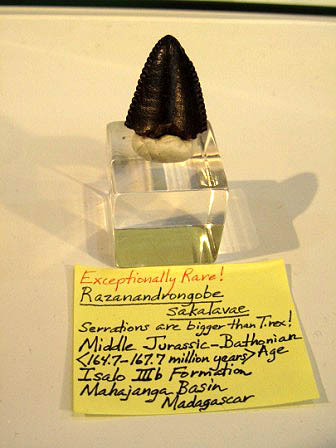 Exceptionally Rare!
Razanandrongobe
sakalavae
Serrations are bigger than T.rex!
Middle Jurassic-Bathonian
<164.7-167.7 million years> Age
Isalo IIIb Formation
Mahajanga Basin
Madagascar